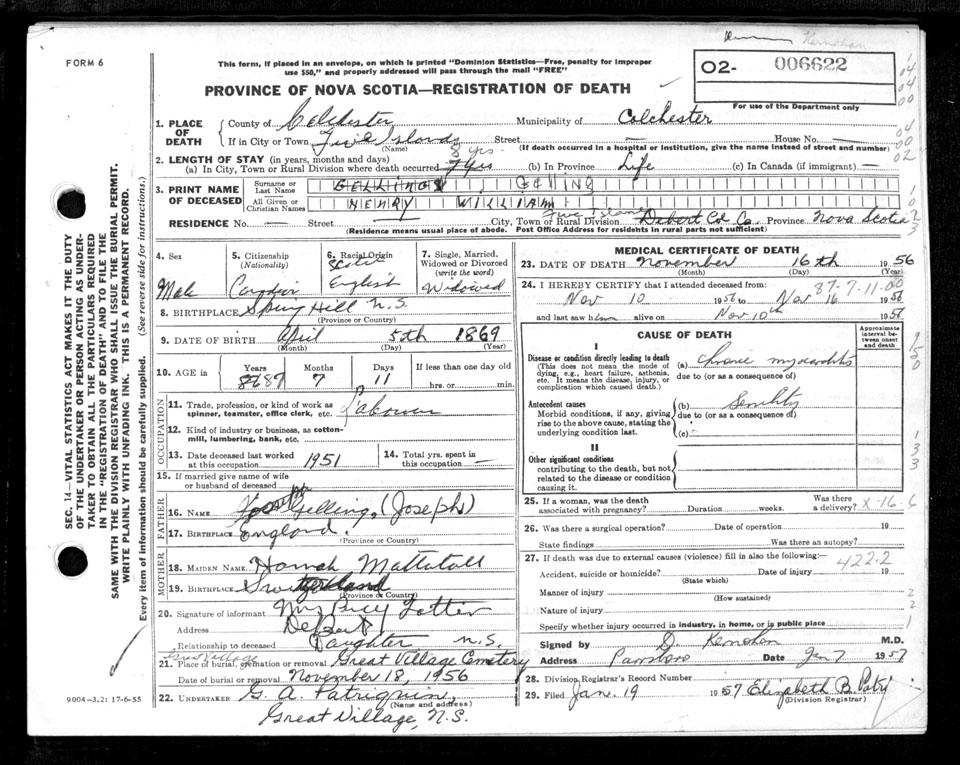 Kernohan
FORM 6
This form, if placed in an envelope, on which is printed "Dominion Statistics—Free, penalty for improper
use $50," and properly addressed will pass through the mail "FREE"
O2- 006622
For use of the Department only
PROVINCE OF NOVA SCOTIA—REGISTRATION OF DEATH
1. PLACE OF DEATH
County of Colchester Municipality of Colchester
If in City or Town Five Islands Street — House No. —
(Name) (If death occurred in a hospital or institution, give the name instead of street and number)
2. LENGTH OF STAY (in years, months and days) 8 yrs.
(a) In City, Town or Rural Division where death occurred 7 yrs (b) In Province Life (c) In Canada (if immigrant) —
3. PRINT NAME OF DECEASED
Surname or Last Name GELLING
All Given or Christian Names HENRY WILLIAM
Five Islands
RESIDENCE No. — Street City, Town or Rural Division Debert Col. Co. Province Nova Scotia
(Residence means usual place of abode. Post Office Address for residents in rural parts not sufficient)
4. Sex Male
5. Citizenship (Nationality) Canadian
6. Racial Origin English
7. Single, Married, Widowed or Divorced (write the word) Widowed
8. BIRTHPLACE Spring Hill N.S.
(Province or Country)
9. DATE OF BIRTH April 5th 1869
(Month) (Day) (Year)
10. AGE in Years 87 Months 7 Days 11 If less than one day old
hrs. or min.
OCCUPATION
11. Trade, profession, or kind of work as spinner, teamster, office clerk, etc. Labourer
12. Kind of industry or business, as cotton-mill, lumbering, bank, etc.
13. Date deceased last worked at this occupation 1951
14. Total yrs. spent in this occupation —
15. If married give name of wife or husband of deceased
FATHER
16. NAME Joseph Gelling, (Joseph)
17. BIRTHPLACE England.
(Province or Country)
MOTHER
18. MAIDEN NAME Hannah Mattatall
19. BIRTHPLACE Switzerland
(Province or Country)
20. Signature of informant Mrs Percy Totten
Address Debert N.S.
Relationship to deceased Daughter
Great Village
21. Place of burial, cremation or removal Great Village Cemetery
Date of burial or removal November 18, 1956
22. UNDERTAKER G. A. Patriquin,
(Name and address)
Great Village, N.S.
MEDICAL CERTIFICATE OF DEATH
23. DATE OF DEATH November 16th 1956
(Month) (Day) (Year)
87-7-11-00
24. I HEREBY CERTIFY that I attended deceased from:
Nov 10 1956 to Nov 16 1956
and last saw him alive on Nov 10th 1956
CAUSE OF DEATH
Approximate interval between onset and death
I
Disease or condition directly leading to death
(This does not mean the mode of dying, e.g., heart failure, asthenia, etc. It means the disease, injury, or complication which caused death.)
(a) Chronic myocarditis
due to (or as a consequence of)
Antecedent causes
Morbid conditions, if any, giving rise to the above cause, stating the underlying condition last.
(b) Senility
due to (or as a consequence of)
(c)
II
Other significant conditions
contributing to the death, but not related to the disease or condition causing it.
25. If a woman, was the death associated with pregnancy? Duration weeks. Was there a delivery? X-16-6
26. Was there a surgical operation? Date of operation 19
State findings Was there an autopsy?
27. If death was due to external causes (violence) fill in also the following:— 422.2
Accident, suicide or homicide? Date of injury 19
(State which)
Manner of injury
(How sustained)
Nature of injury
Specify whether injury occurred in industry, in home, or in public place
Signed by D. Kernohan M.D.
Address Parrsboro Date Jan 7 1957
28. Division Registrar's Record Number
29. Filed Jan. 19 1957 Elizabeth B.
(Division Registrar)
SEC. 14—VITAL STATISTICS ACT MAKES IT THE DUTY
OF THE UNDERTAKER OR PERSON ACTING AS UNDER-
TAKER TO OBTAIN ALL THE PARTICULARS REQUIRED
IN THE "REGISTRATION OF DEATH" AND TO FILE THE
SAME WITH THE DIVISION REGISTRAR WHO SHALL ISSUE THE BURIAL PERMIT.
WRITE PLAINLY WITH UNFADING INK. THIS IS A PERMANENT RECORD.
Every item of information should be carefully supplied. (See reverse side for instructions.)
9004—3.2: 17-6-55